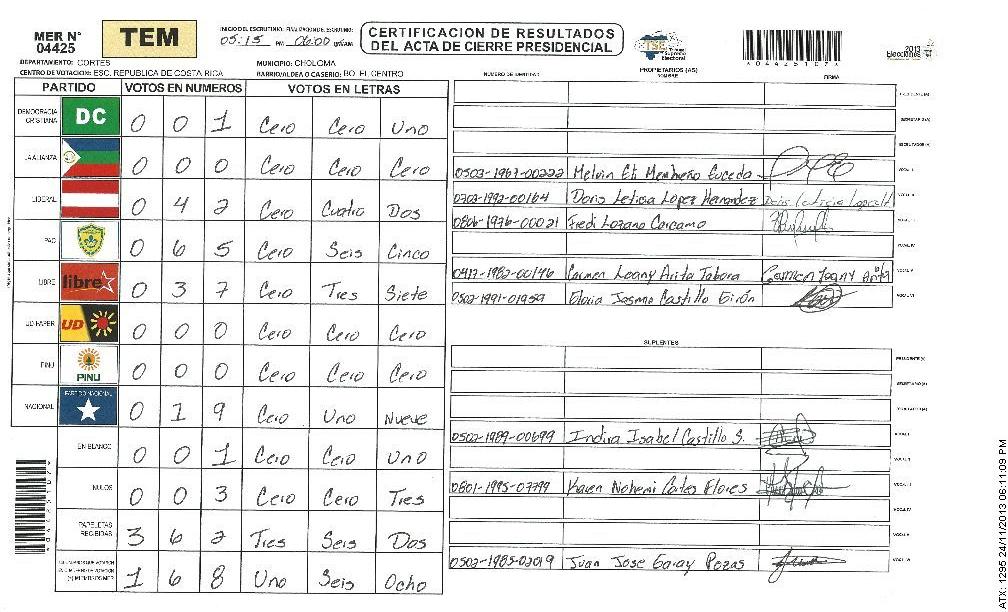 MER N° 04425
TEM
INICIO DEL ESCRUTINIO: FINALIZACION DE ESCRUTINIO:
05:15 PM 06:00
CERTIFICACION DE RESULTADOS
DEL ACTA DE CIERRE PRESIDENCIAL
TSE Tribunal Supremo Electoral
X044251D7X
2013
Elecciones
DEPARTAMENTO: CORTES MUNICIPIO: CHOLOMA
CENTRO DE VOTACION: ESC. REPUBLICA DE COSTA RICA BARRIO/ALDEA O CASERIO: BO. EL CENTRO
NUMERO DE IDENTIDAD PROPIETARIOS (AS) NOMBRE FIRMA
PARTIDO VOTOS EN NUMEROS VOTOS EN LETRAS
DEMOCRACIA CRISTIANA DC 0 0 1 Cero Cero Uno
LA ALIANZA 0 0 0 Cero Cero Cero
LIBERAL 0 4 2 Cero Cuatro Dos
PAC 0 6 5 Cero Seis Cinco
LIBRE libre 0 3 7 Cero Tres Siete
UD-FAPER UD 0 0 0 Cero Cero Cero
PINU PINU 0 0 0 Cero Cero Cero
NACIONAL PARTIDO NACIONAL 0 1 9 Cero Uno Nueve
EN BLANCO 0 0 1 Cero Cero Uno
NULOS 0 0 3 Cero Cero Tres
PAPELETAS RECIBIDAS 3 6 2 Tres Seis Dos
1 6 8 Uno Seis Ocho
0503-1967-00222 Melvin Eli Membreño Euceda
0702-1992-00164 Doris Leticia Lopez Hernandez Doris Leticia Lopez H
0806-1976-00021 Fredi Lozano Carcamo
0417-1982-00146 Carmen Loany Arita Tabora Carmen Loany Arita
0502-1991-01959 Gloria Jasmin Castillo Girón
SUPLENTES
0502-1989-00699 Indira Isabel Castillo S.
0801-1995-07799 Karen Nohemi Cortes Flores
0502-1985-02019 Juan Jose Garay Pezas
ATX: 1295 24/11/2013 06:11:09 PM